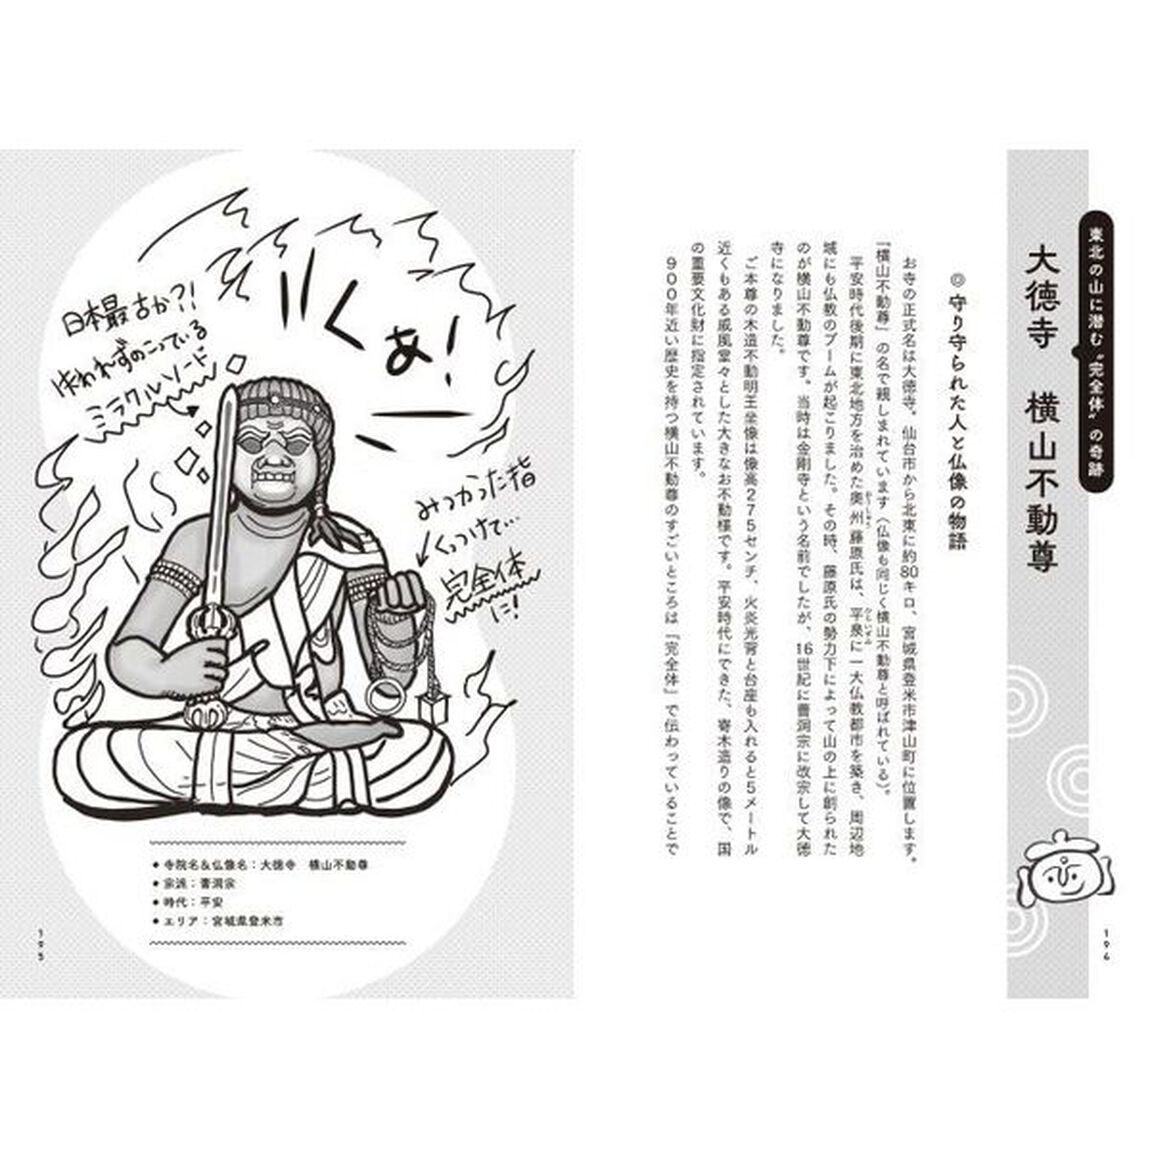 東北の山に潜む“完全体”の奇跡
大徳寺　横山不動尊
◎守り守られた人と仏像の物語
お寺の正式名は大徳寺。仙台市から北東に約80キロ、宮城県登米市津山町に位置します。
『横山不動尊』の名で親しまれています（仏像も同じく横山不動尊と呼ばれている）。
平安時代後期に東北地方を治めた奥州藤原氏は、平泉に一大仏教都市を築き、周辺地
域にも仏教のブームが起こりました。その時、藤原氏の勢力下によって山の上に創られた
のが横山不動尊です。当時は金剛寺という名前でしたが、16世紀に曹洞宗に改宗して大徳
寺になりました。
ご本尊の木造不動明王坐像は像高275センチ、火炎光背と台座も入れると5メートル
近くもある威風堂々とした大きなお不動様です。平安時代にできた、寄木造りの像で、国
の重要文化財に指定されています。
900年近い歴史を持つ横山不動尊のすごいところは『完全体』で伝わっていることで
194
くぁ!
日本最古か?!
失われずのこっている
ミラクルソード
みつかった指
くっつけて…
完全体
に!
◆寺院名&仏像名：大徳寺　横山不動尊
◆宗派：曹洞宗
◆時代：平安
◆エリア：宮城県登米市
195